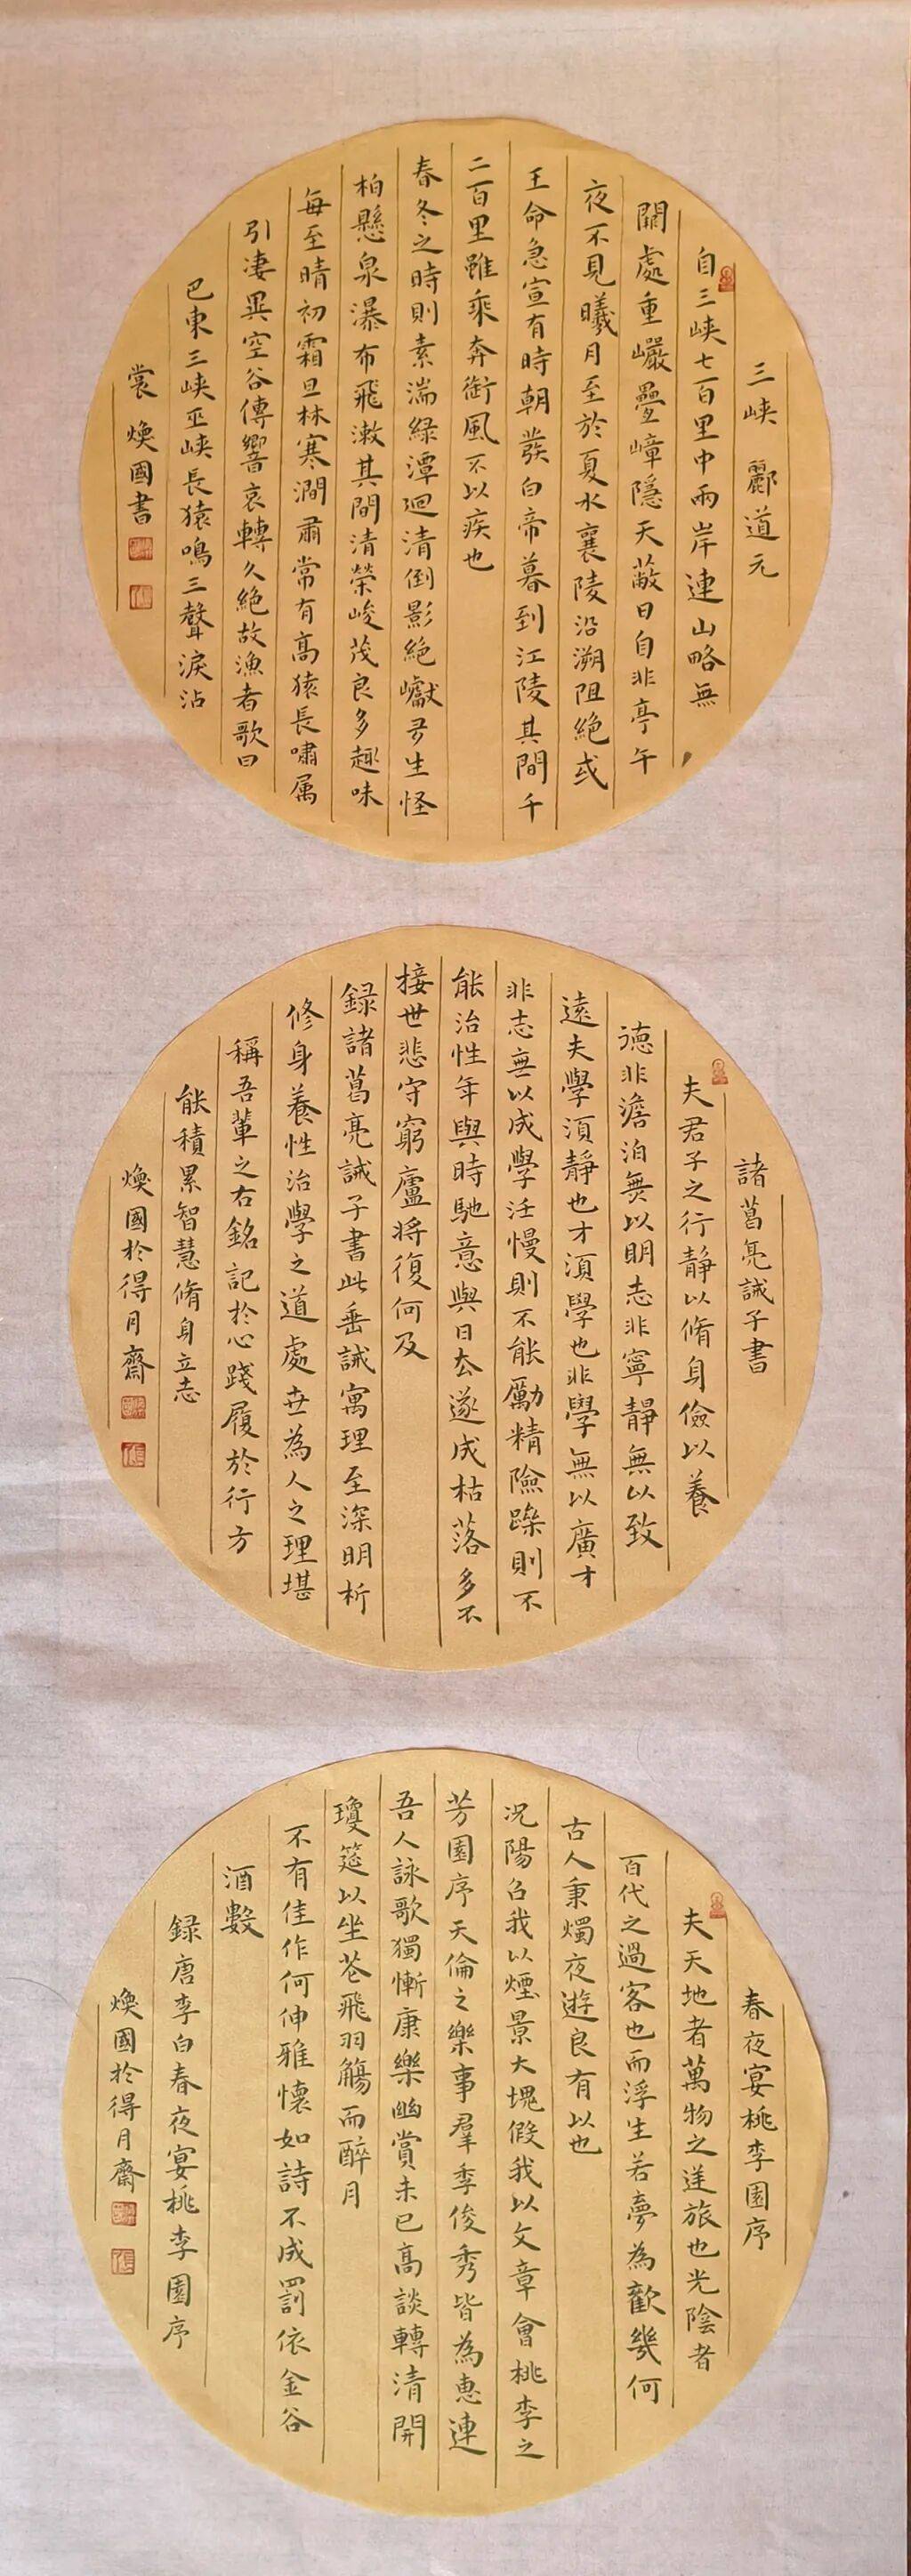 三峽 酈道元
自三峽七百里中兩岸連山略無
闕處重巖疊嶂隱天蔽日自非亭午
夜不見曦月至於夏水襄陵沿溯阻絕或
王命急宣有時朝發白帝暮到江陵其間千
二百里雖乘奔御風不以疾也
春冬之時則素湍綠潭迴清倒影絕巘多生怪
柏懸泉瀑布飛漱其間清榮峻茂良多趣味
每至晴初霜旦林寒澗肅常有高猿長嘯屬
引凄異空谷傳響哀轉久絕故漁者歌曰
巴東三峽巫峽長猿鳴三聲淚沾
裳 煥國書
諸葛亮誡子書
夫君子之行靜以脩身儉以養
德非澹泊無以明志非寧靜無以致
遠夫學須靜也才須學也非學無以廣才
非志無以成學淫慢則不能勵精險躁則不
能治性年與時馳意與日去遂成枯落多不
接世悲守窮廬將復何及
録諸葛亮誡子書此垂誡寓理至深明析
修身養性治學之道處世為人之理堪
稱吾輩之右銘記於心踐履於行方
能積累智慧脩身立志
煥國於得月齋
春夜宴桃李園序
夫天地者萬物之逆旅也光陰者
百代之過客也而浮生若夢為歡幾何
古人秉燭夜遊良有以也
況陽召我以煙景大塊假我以文章會桃李之
芳園序天倫之樂事羣季俊秀皆為惠連
吾人詠歌獨慚康樂幽賞未已高談轉清開
瓊筵以坐花飛羽觴而醉月
不有佳作何伸雅懷如詩不成罰依金谷
酒數
録唐李白春夜宴桃李園序
煥國於得月齋